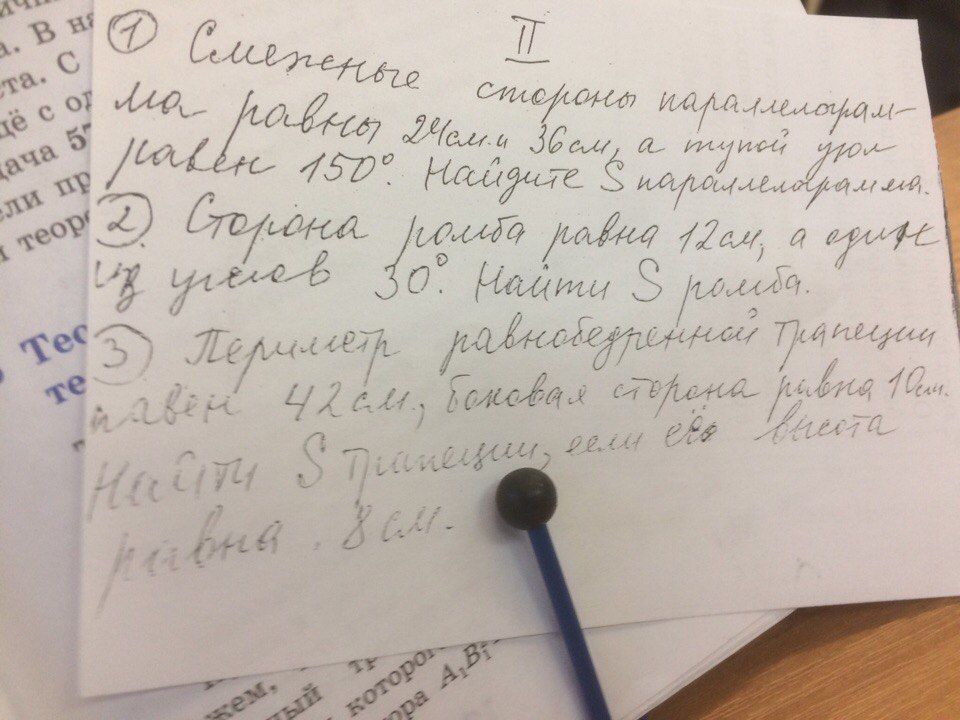 II
① Смежные стороны параллелограм-
ма равны 24см и 36см, а тупой угол
равен 150°. Найдите S параллелограмма.
② Сторона ромба равна 12см, а один
из углов 30°. Найти S ромба.
③ Периметр равнобедренной трапеции
равен 42см, боковая сторона равна 10см.
Найти S трапеции, если её высота
равна 8см.
а. В
ста. С
щё с од
дача 5
ели пр
теор
Тео
те
жем,
ный
которо
ора A₁B₁